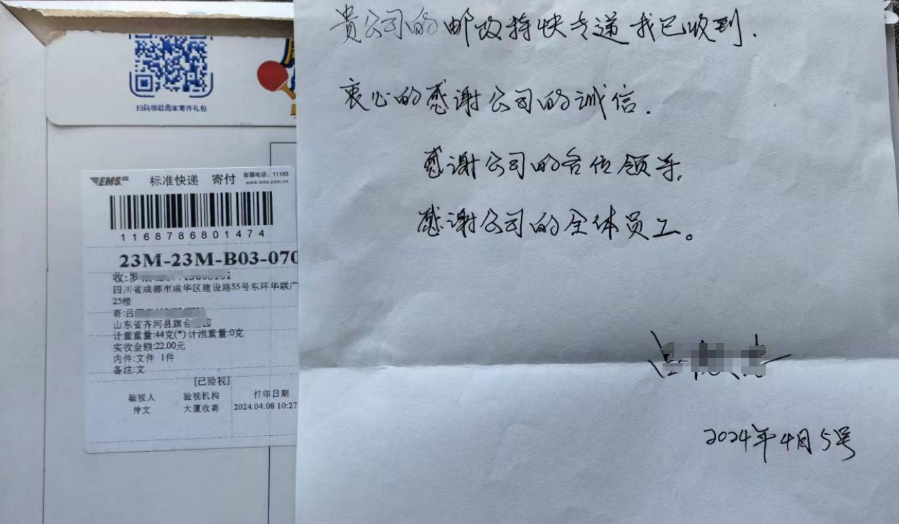 扫码领取商家寄件礼包
EMS 标准快递 寄付 客服电话：11183
www.ems.com.cn
1168786801474
23M-23M-B03-070
收:罗
四川省成都市成华区建设路55号东环华联广
25楼
寄:吕
山东省齐河县旗
计重重量:44克(*)计泡重量:0克
实收金额:22.00元
内件:文件 1件
备注:文
[已验视]
验视人 验视机构 打印日期
仲文 大厦收寄 2024.04.08 10:27
贵公司的邮政特快专递我已收到.
衷心的感谢公司的诚信.
感谢公司的各位领导,
感谢公司的全体员工。
2024年4月5号